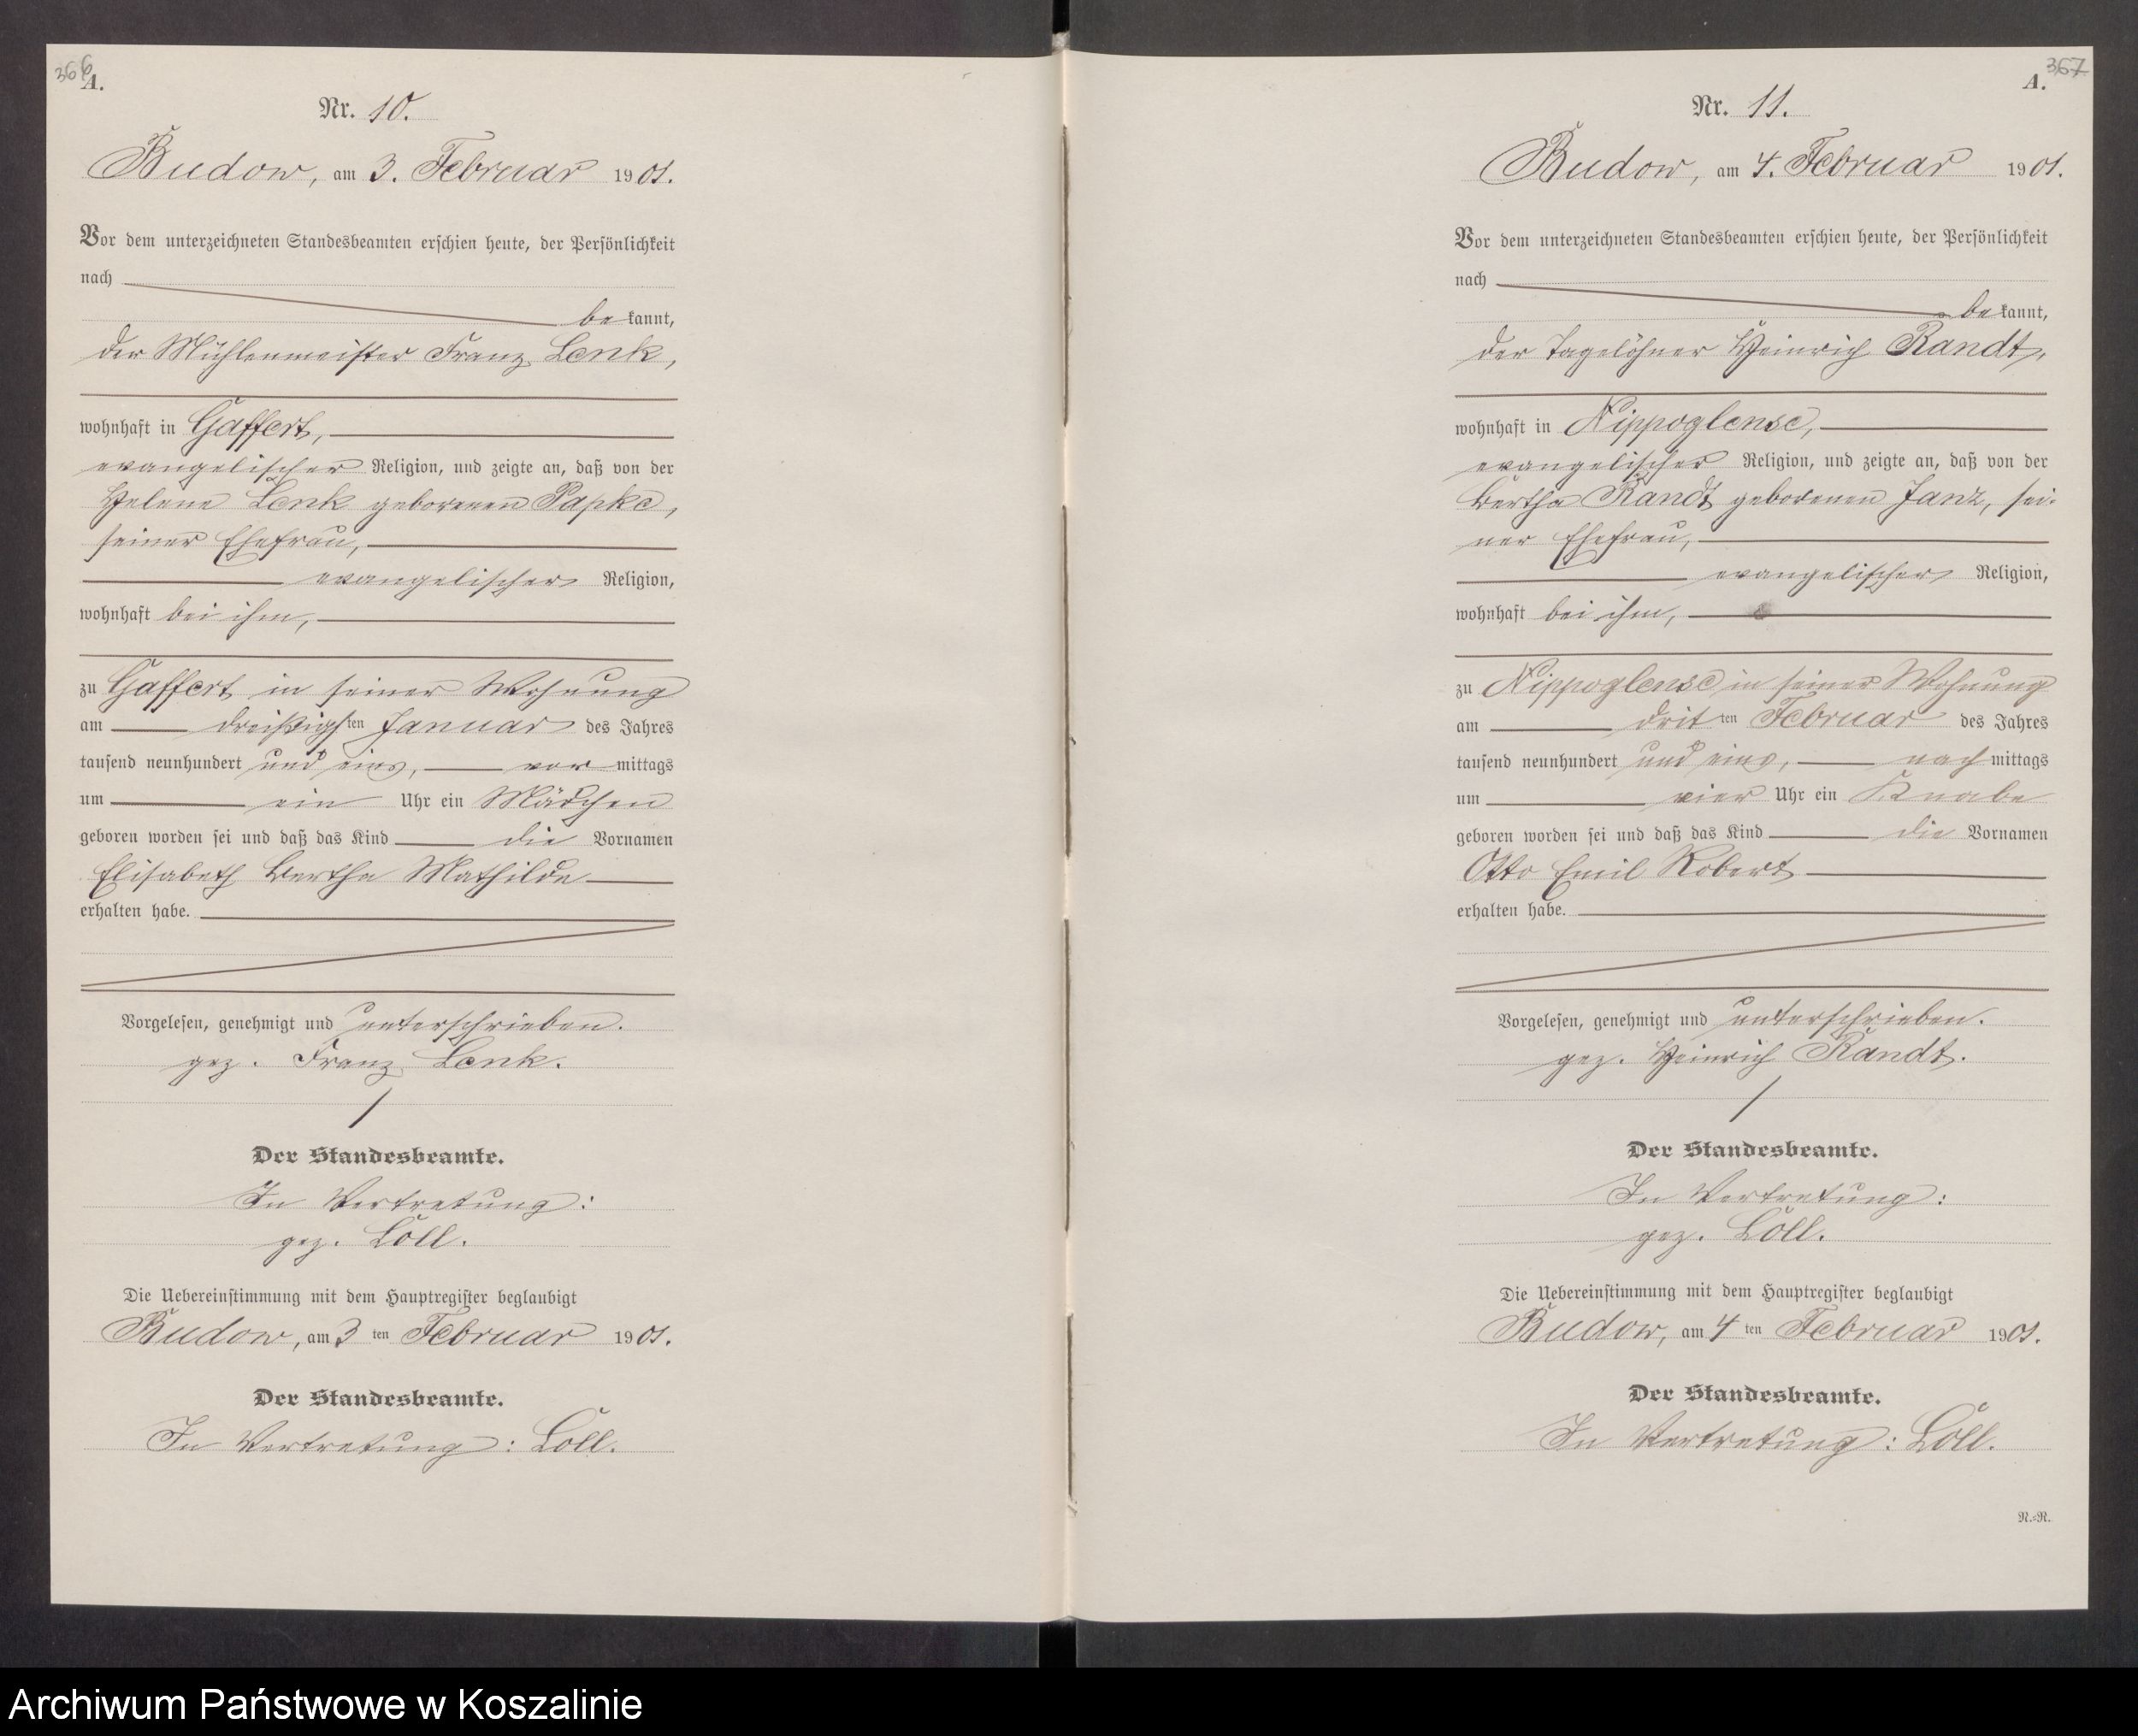 366
A.
Nr. 10.
Budow, am 3. Februar 1901.
Vor dem unterzeichneten Standesbeamten erschien heute, der Persönlichkeit
nach
be kannt,
der Mühlenmeister Franz Lenk,
wohnhaft in Gaffert,
evangelischer Religion, und zeigte an, daß von der
Helene Lenk geborenen Papke,
seiner Ehefrau,
evangelischer Religion,
wohnhaft bei ihm,
zu Gaffert in seiner Wohnung
am dreißigsten Januar des Jahres
tausend neunhundert und eins, vor mittags
um ein Uhr ein Mädchen
geboren worden sei und daß das Kind die Vornamen
Elisabeth Bertha Mathilde
erhalten habe.
Vorgelesen, genehmigt und unterschrieben.
gez. Franz Lenk.
Der Standesbeamte.
In Vertretung:
gez. Löll.
Die Uebereinstimmung mit dem Hauptregister beglaubigt
Budow, am 3 ten Februar 1901.
Der Standesbeamte.
In Vertretung: Löll.
367
A.
Nr. 11.
Budow, am 4. Februar 1901.
Vor dem unterzeichneten Standesbeamten erschien heute, der Persönlichkeit
nach
be kannt,
der Tagelöhner Heinrich Randt,
wohnhaft in Nippoglense,
evangelischer Religion, und zeigte an, daß von der
Bertha Randt geborenen Janz, sei-
ner Ehefrau,
evangelischer Religion,
wohnhaft bei ihm,
zu Nippoglense in seiner Wohnung
am drit ten Februar des Jahres
tausend neunhundert und eins, nach mittags
um vier Uhr ein Knabe
geboren worden sei und daß das Kind die Vornamen
Otto Emil Robert
erhalten habe.
Vorgelesen, genehmigt und unterschrieben.
gez. Heinrich Randt.
Der Standesbeamte.
In Vertretung:
gez. Löll.
Die Uebereinstimmung mit dem Hauptregister beglaubigt
Budow, am 4 ten Februar 1901.
Der Standesbeamte.
In Vertretung: Löll.
N.=R.
Archiwum Państwowe w Koszalinie